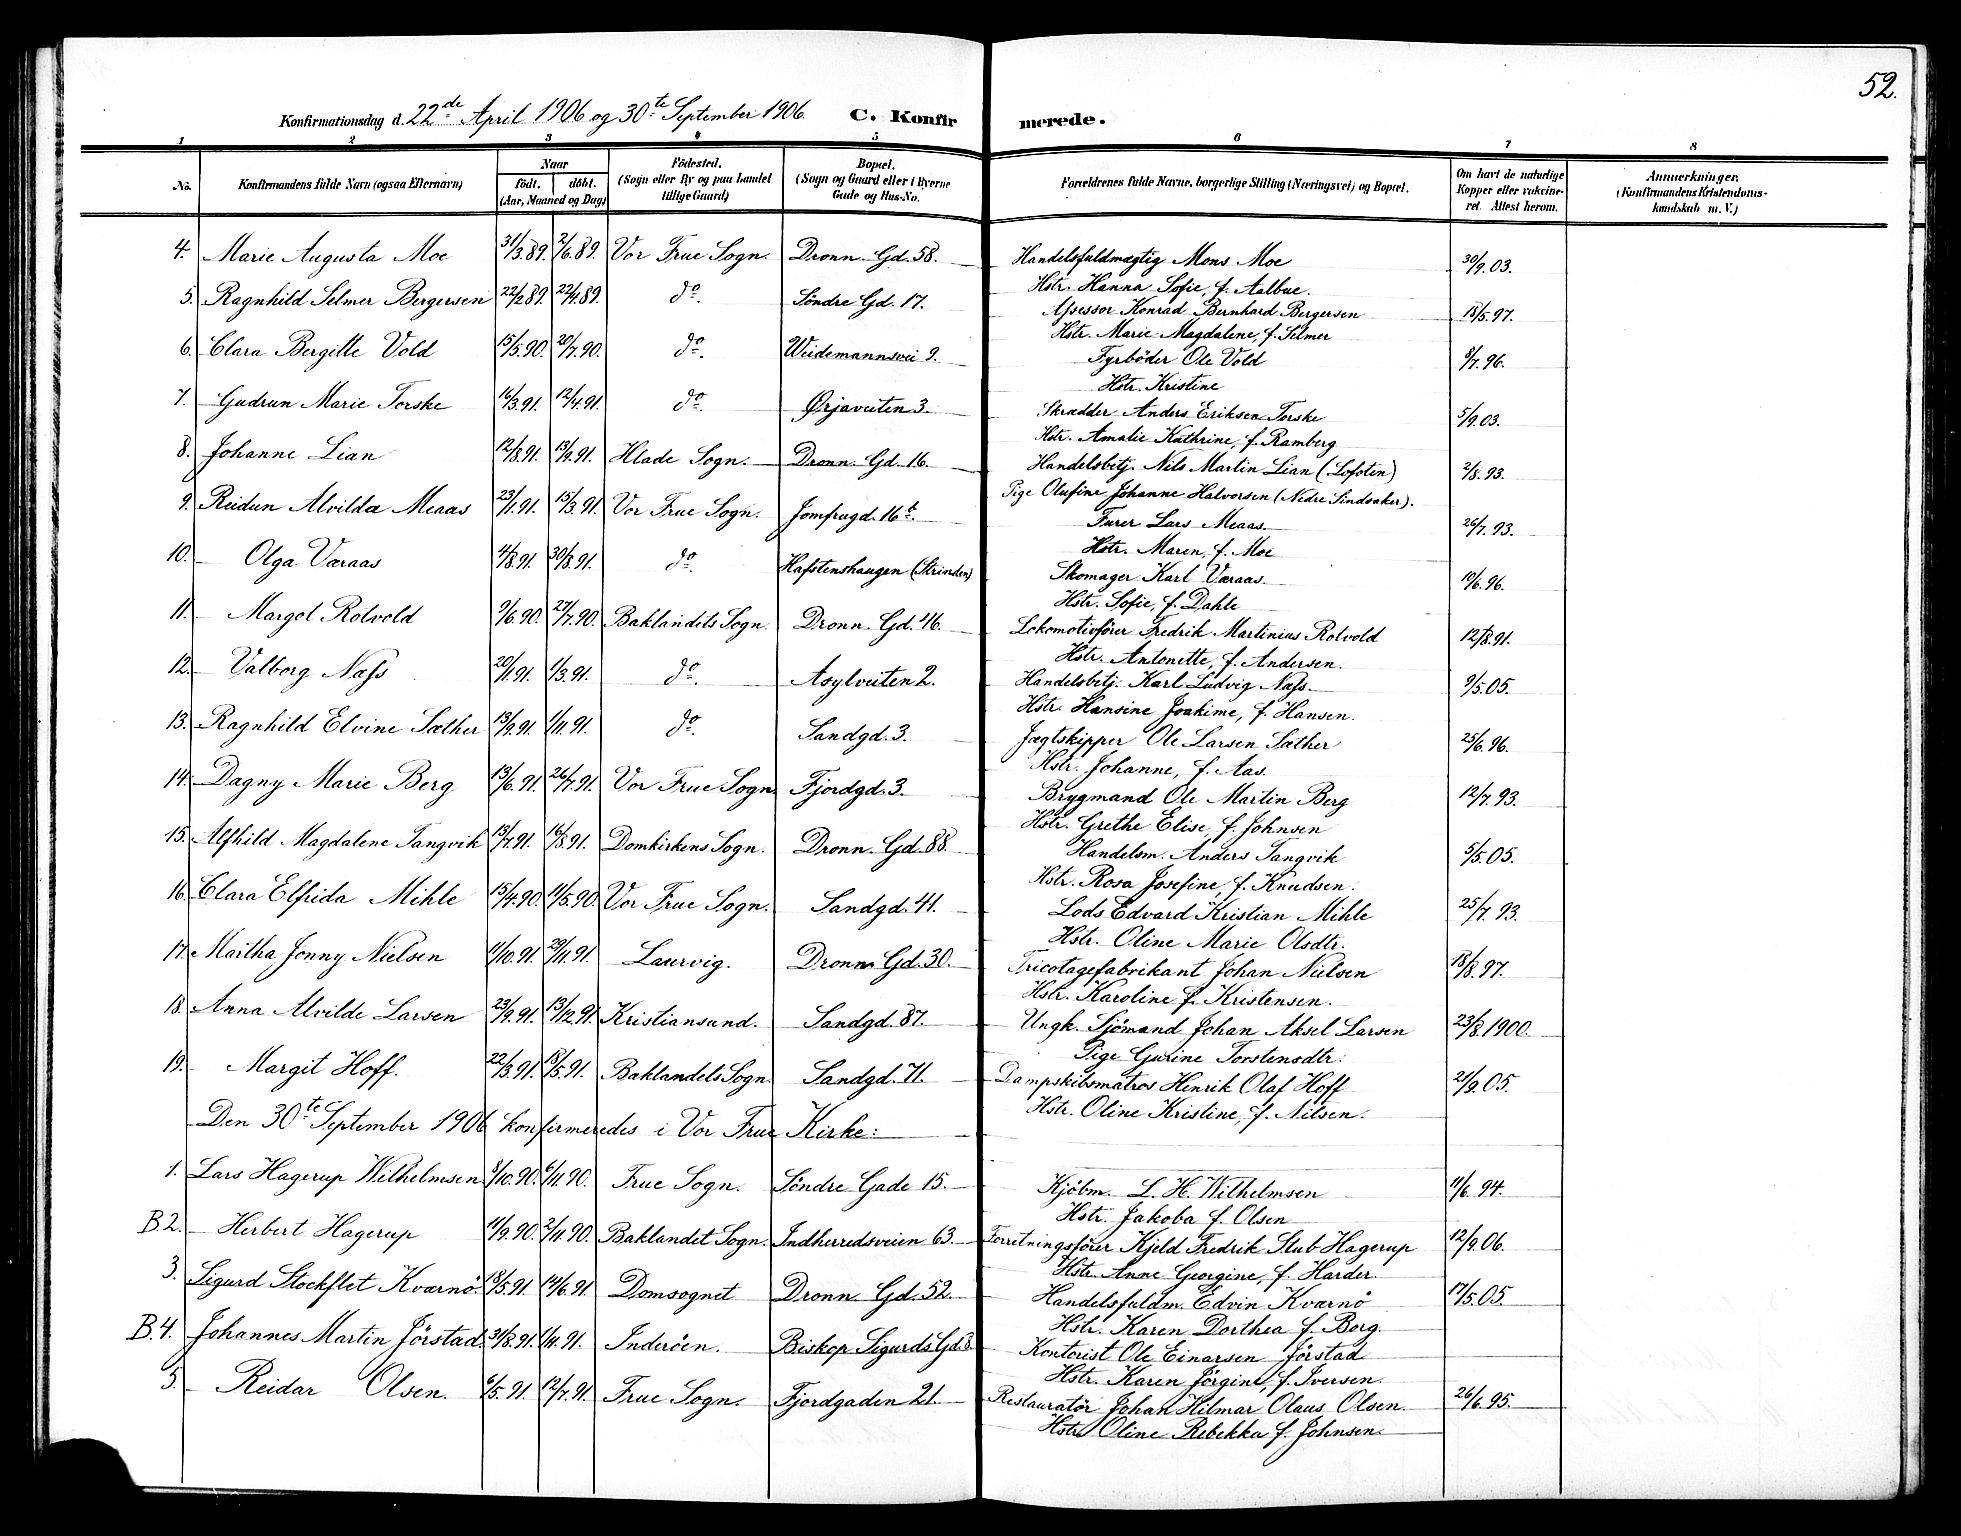 52.
Konfirmationsdag d. 22de April 1906 og 30te September 1906. C. Konfirmerede.
1 2 3 4 5 6 7 8
No. Konfirmandens fulde Navn (ogsaa Efternavn) Naar født. døbt. (Aar, Maaned og Dag) Födested. (Sogn eller By og paa Landet tillige Gaard) Bopæl. (Sogn og Gaard eller i Byerne Gade og Hus-No. Forældrenes fulde Navne, borgerlige Stilling (Næringsvei) og Bopæl. Om havt de naturlige Kopper eller vakcineret. Attest herom. Anmærkninger. (Konfirmandens Kristendomskundskab m. V.)
4. Marie Augusta Moe 31/3.89. 2/6.89. Vor Frue Sogn. Dronn. Gd. 58. Handelsfuldmægtig Mons Moe 30/9.03.
Hstr. Hanna Sofie, f. Aalbue.
5. Ragnhild Selmer Bergersen 22/2.89. 22/4.89. do. Söndre Gd. 17. Assessor Konrad Bernhard Bergersen 18/5.97.
Hstr. Marie Magdalene, f. Selmer
6. Clara Bergitte Vold 15/5.90. 20/7.90. do. Weidemannsvei 9. Fyrböder Ole Vold 9/7.96.
Hstr. Kristine
7. Gudrun Marie Torske 16/3.91. 12/4.91. do. Ørjaveiten 3. Skrædder Anders Eriksen Torske 5/9.03.
Hstr. Amalie Kathrine, f. Ramberg
8. Johanne Lian 12/8.91. 13/9.91. Hlade Sogn. Dronn. Gd. 16. Handelsbetj. Nils Martin Lian (Lofoten) 2/8.93.
Pige Olufine Johanne Halvorsen (Nedre Sindsaker).
9. Reidun Alvilda Meaas 23/1.91. 15/3.91. Vor Frue Sogn. Jomfrugd. 16 b. Furer Lars Meaas. 26/7.93.
Hstr. Maren, f. Moe
10. Olga Væraas 4/8.91. 30/8.91. do. Hafstenshaugen (Strinden) Skomager Karl Væraas. 10/6.96.
Hstr. Sofie, f. Dahle
11. Margot Rotvold 9/6.90. 27/7.90. Baklandets Sogn. Dronn. Gd. 46. Lokomotivfører Fredrik Martinius Rotvold 12/8.91.
Hstr. Antonette, f. Andersen.
12. Valborg Næss 20/1.91. 1/3.91. do. Asylveiten 2. Handelsbetj. Karl Ludvig Næss. 9/5.05.
Hstr. Hansine Joakime, f. Hansen.
13. Ragnhild Elvine Sæther 13/9.91. 1/11.91. do. Sandgd. 3. Jægtskipper Ole Larsen Sæther 25/6.96.
Hstr. Johanne, f. Aas.
14. Dagny Marie Berg 13/6.91. 26/7.91. Vor Frue Sogn Fjordgd. 3. Brygmand Ole Martin Berg 12/7.93.
Hstr. Grethe Elise, f. Johnsen
15. Alfhild Magdalene Tangvik 13/7.91. 16/8.91. Domkirkens Sogn. Dronn. Gd. 88. Handelsm. Anders Tangvik 5/5.05.
Hstr. Rosa Josefine, f. Knudsen.
16. Clara Elfrida Mihle 15/4.90. 11/5.90. Vor Frue Sogn. Sandgd. 41. Lods Edvard Kristian Mihle 25/7.93.
Hstr. Oline Marie Olsdtr.
17. Martha Jonny Nielsen 11/10.91. 29/11.91. Laurvig. Dronn Gd. 30. Tricotagefabrikant Johan Nielsen 18/8.97.
Hstr. Karoline f. Kristensen.
18. Anna Alvilde Larsen 23/9.91. 13/12.91. Kristiansund. Sandgd. 87. Ungk. Sjömand Johan Aksel Larsen 23/8.1900.
Pige Gurine Torstensdtr.
19. Margit Hoff. 22/3.91. 18/5.91. Baklandets Sogn. Sandgd. 71. Dampskibsmatros Henrik Olaf Hoff 21/9.05.
Hstr. Oline Kristine, f. Nilsen.
Den 30te September 1906 konfirmeredes i Vor Frue Kirke:
1. Lars Hagerup Wilhelmsen 8/10.90. 6/11.90. Frue Sogn. Söndre Gade 15. Kjöbm. L. H. Wilhelmsen 11/6.94.
Hstr. Jakoba f. Olsen
B.2. Herbert Hagerup 11/9.90. 2/11.90. Baklandet Sogn. Indherredsveien 63. Forretningsfører Kjeld Fredrik Stub Hagerup 12/9.06.
Hstr. Anne Georgine, f. Harder.
3. Sigurd Stockflet Kværnö. 18/5.91. 14/6.91. Domsognet Dronn. Gd. 52. Handelsfuldm. Edvin Kværnö 17/5.05.
Hstr. Karen Dorthea f. Borg.
B.4. Johannes Martin Jörstad. 31/8.91. 1/11.91. Inderöen. Biskop Sigurds Gd. 8. Kontorist Ole Einarsen Jörstad
Hstr. Karen Jörgine, f. Iversen.
5. Reidar Olsen. 6/5.91. 12/7.91. Frue Sogn. Fjordgaden 21. Restauratör Johan Hilmar Olaus Olsen. 26/6.95.
Hstr. Oline Rebekka f. Johnsen.